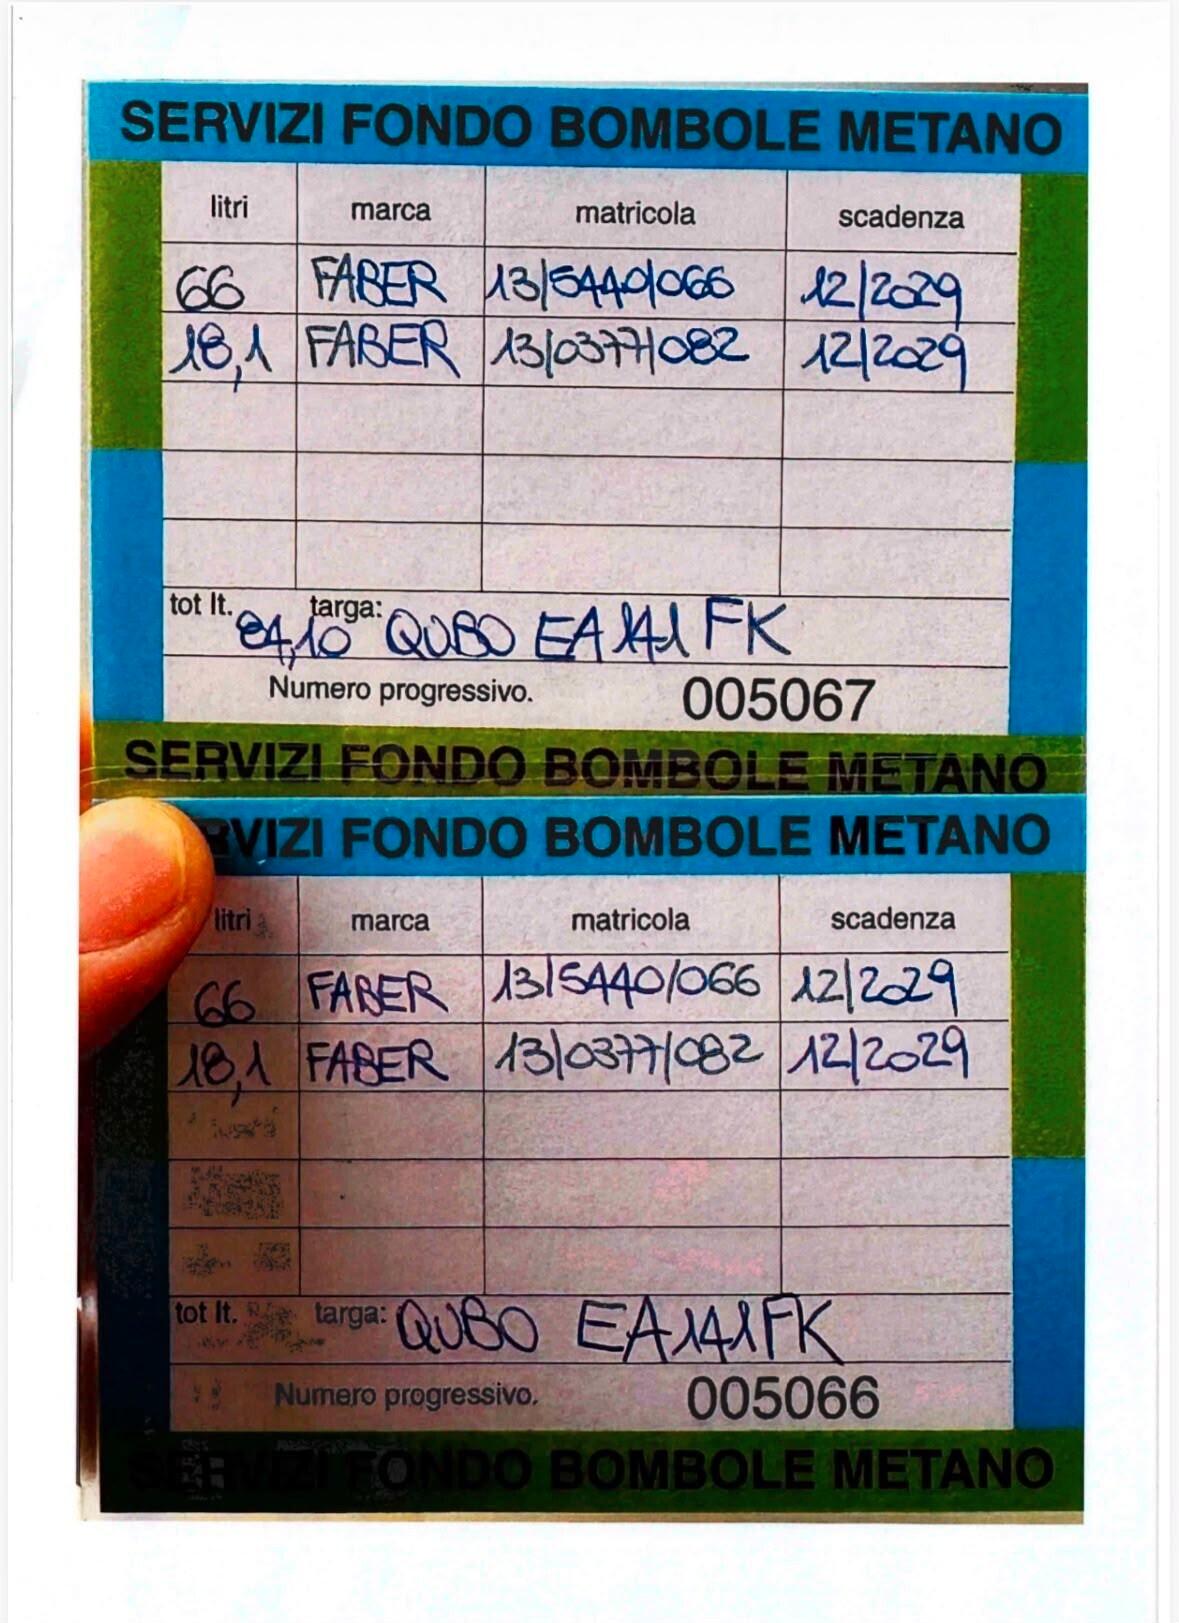 SERVIZI FONDO BOMBOLE METANO
litri marca matricola scadenza
66 FABER 13/5440/066 12/2029
18,1 FABER 13/0377/082 12/2029
tot lt. 84,10 targa: QUBO EA141FK
Numero progressivo. 005067
SERVIZI FONDO BOMBOLE METANO
RVIZI FONDO BOMBOLE METANO
litri marca matricola scadenza
66 FABER 13/5440/066 12/2029
18,1 FABER 13/0377/082 12/2029
tot lt. targa: QUBO EA141FK
Numero progressivo. 005066
SERVIZI FONDO BOMBOLE METANO